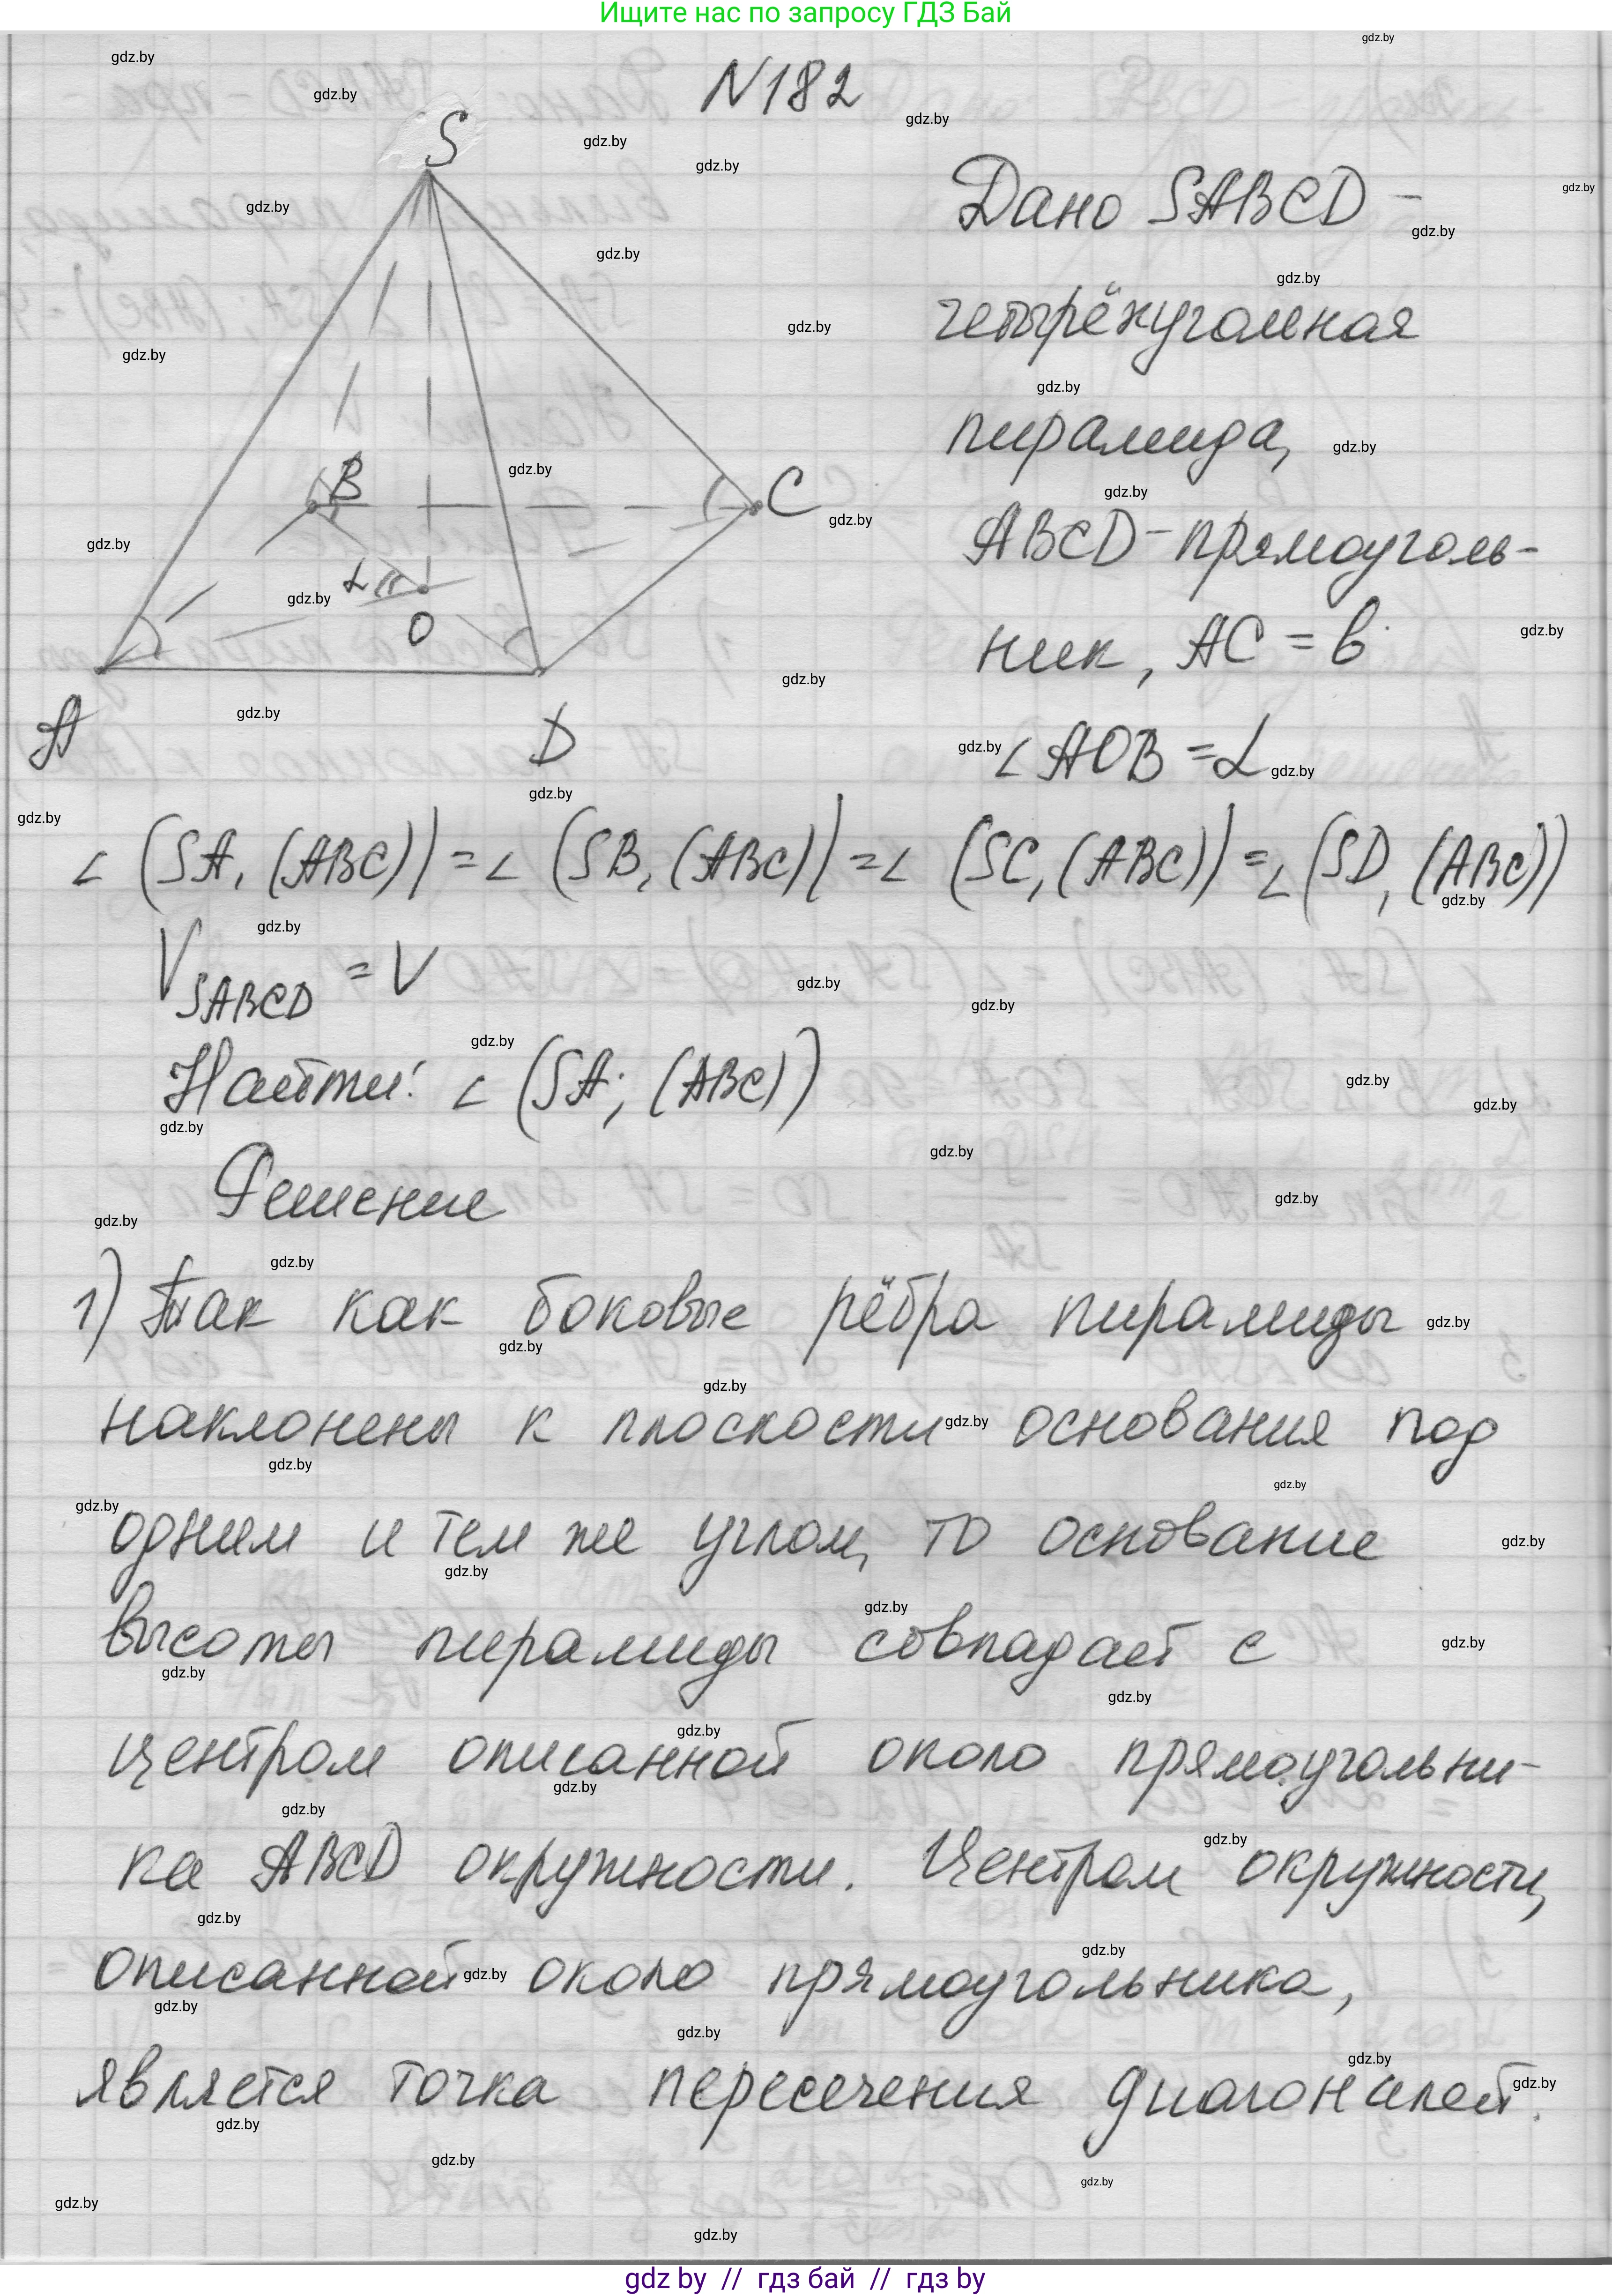 Ищите нас по запросу ГДЗ Бай
N182
S
B
C
α
O
A
D
Дано SABCD -
четырёхугольная
пирамида,
ABCD - прямоуголь-
ник, AC = b
∠ AOB = α
∠ (SA, (ABC)) = ∠ (SB, (ABC)) = ∠ (SC, (ABC)) = ∠ (SD, (ABC))
V SABCD = V
Найти: ∠ (SA; (ABC))
Решение
1) Так как боковые рёбра пирамиды
наклонены к плоскости основания под
одним и тем же углом, то основание
высоты пирамиды совпадает с
центром описанной около прямоугольни-
ка ABCD окружности. Центром окружности,
описанной около прямоугольника,
является точка пересечения диагоналей.
gdz by // гдз бай // гдз by